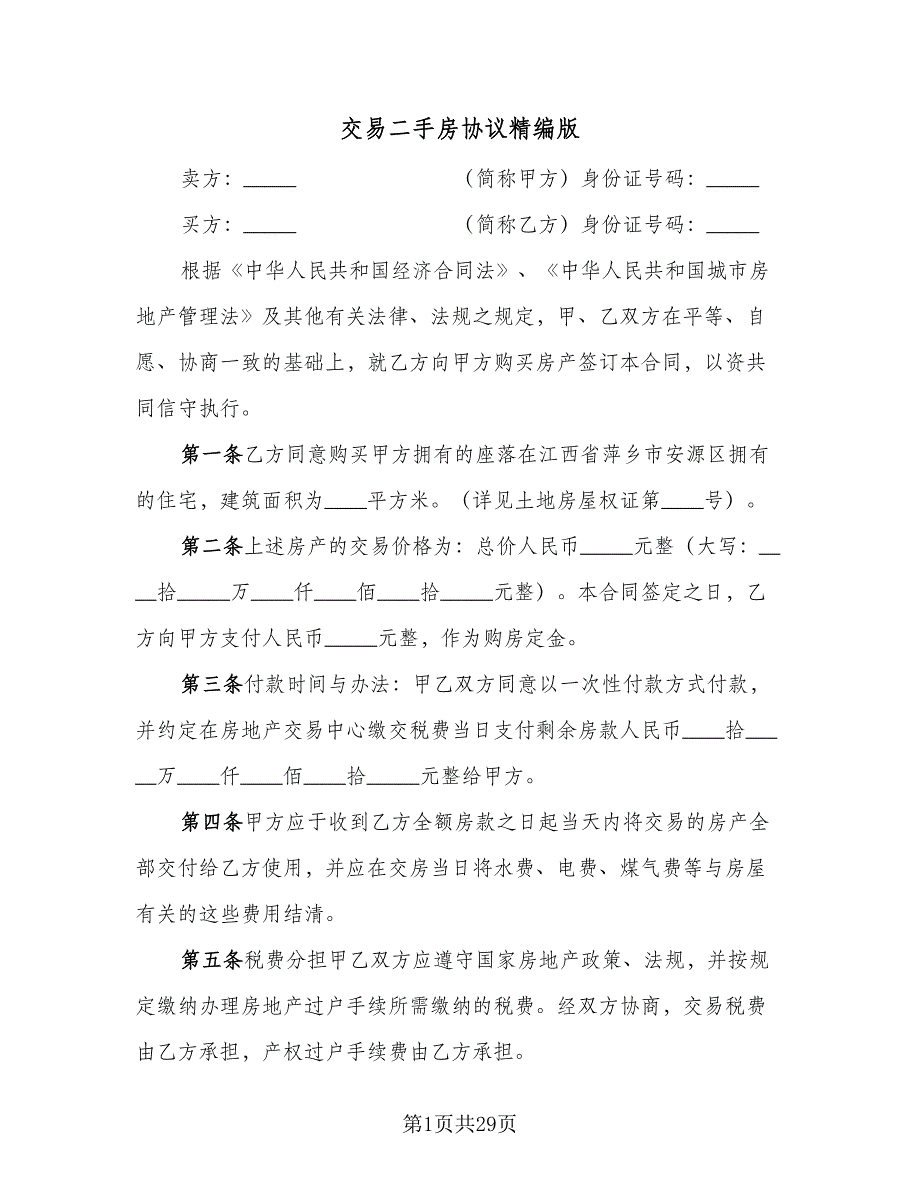 交易二手房协议精编版
卖方：_____ （简称甲方）身份证号码：_____
买方：_____ （简称乙方）身份证号码：_____
根据《中华人民共和国经济合同法》、《中华人民共和国城市房
地产管理法》及其他有关法律、法规之规定，甲、乙双方在平等、自
愿、协商一致的基础上，就乙方向甲方购买房产签订本合同，以资共
同信守执行。
第一条乙方同意购买甲方拥有的座落在江西省萍乡市安源区拥有
的住宅，建筑面积为____平方米。（详见土地房屋权证第____号）。
第二条上述房产的交易价格为：总价人民币_____元整（大写：__
__拾_____万____仟____佰____拾_____元整）。本合同签定之日，乙
方向甲方支付人民币_____元整，作为购房定金。
第三条付款时间与办法：甲乙双方同意以一次性付款方式付款，
并约定在房地产交易中心缴交税费当日支付剩余房款人民币____拾___
__万____仟____佰____拾_____元整给甲方。
第四条甲方应于收到乙方全额房款之日起当天内将交易的房产全
部交付给乙方使用，并应在交房当日将水费、电费、煤气费等与房屋
有关的这些费用结清。
第五条税费分担甲乙双方应遵守国家房地产政策、法规，并按规
定缴纳办理房地产过户手续所需缴纳的税费。经双方协商，交易税费
由乙方承担，产权过户手续费由乙方承担。
第1页共29页